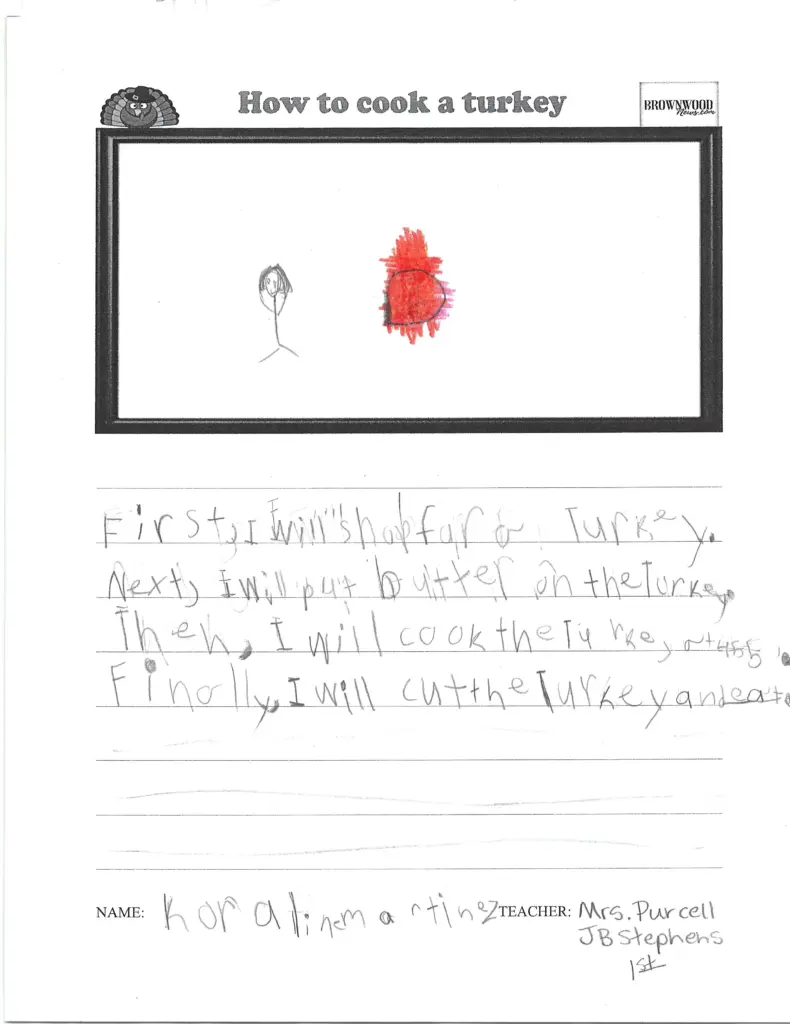 How to cook a turkey
BROWNWOOD
News.com
First, I will shop for a Turkey.
Next, I will put butter on the Turkey.
Then, I will cook the Turkey at 455.
Finally, I will cut the Turkey and eat.
NAME: Koraline martinez TEACHER: Mrs. Purcell
JB Stephens
1st